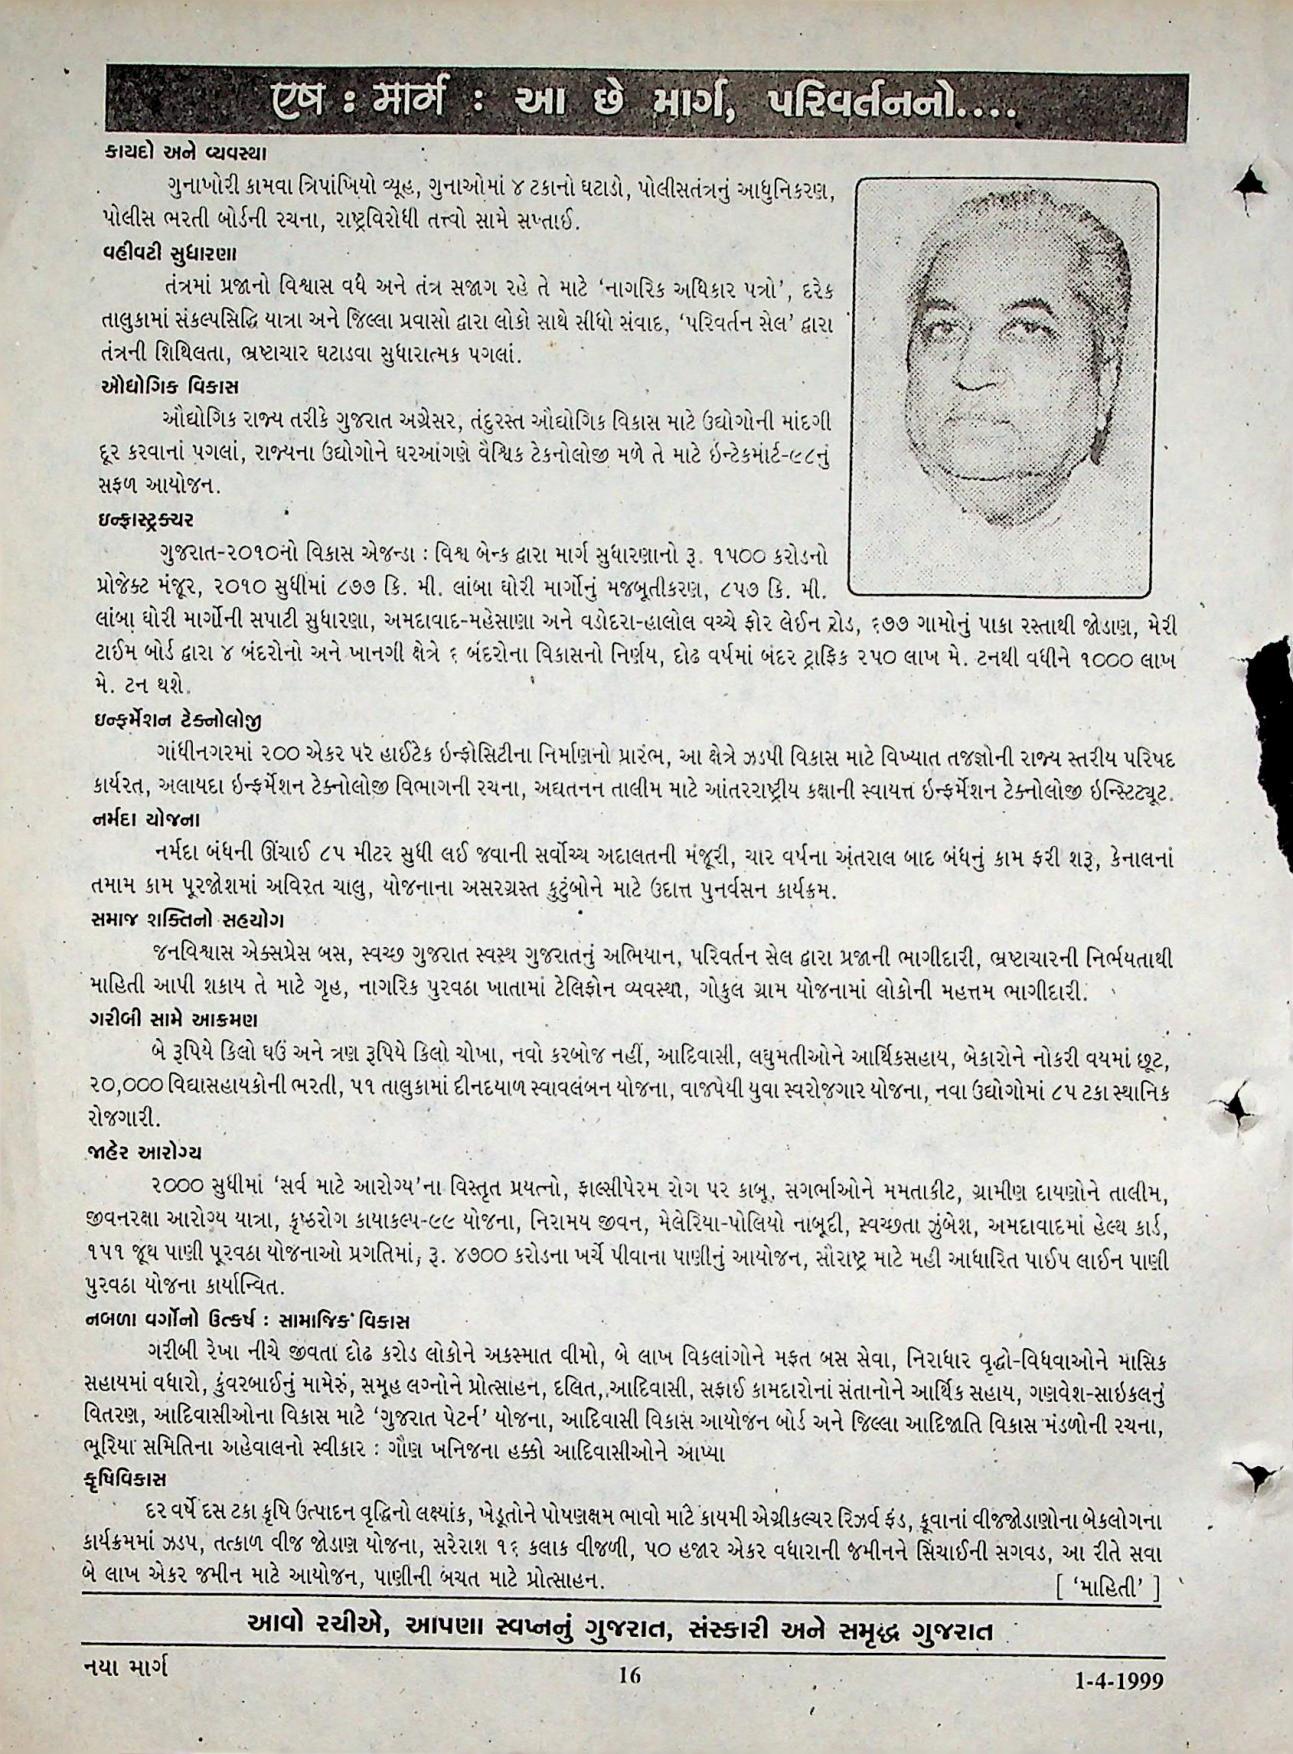 एष : मार्ग : આ છે માર્ગ, પરિવર્તનનો....
કાયદો અને વ્યવસ્થા
ગુનાખોરી કામવા ત્રિપાંખિયો વ્યૂહ, ગુનાઓમાં ૪ ટકાનો ઘટાડો, પોલીસતંત્રનું આધુનિકરણ,
પોલીસ ભરતી બોર્ડની રચના, રાષ્ટ્રવિરોધી તત્ત્વો સામે સખ્તાઈ.
વહીવટી સુધારણા
તંત્રમાં પ્રજાનો વિશ્વાસ વધે અને તંત્ર સજાગ રહે તે માટે ‘નાગરિક અધિકાર પત્રો’, દરેક
તાલુકામાં સંકલ્પસિદ્ધિ યાત્રા અને જિલ્લા પ્રવાસો દ્વારા લોકો સાથે સીધો સંવાદ, ‘પરિવર્તન સેલ’ દ્વારા
તંત્રની શિથિલતા, ભ્રષ્ટાચાર ઘટાડવા સુધારાત્મક પગલાં.
ઔદ્યોગિક વિકાસ
ઔદ્યોગિક રાજ્ય તરીકે ગુજરાત અગ્રેસર, તંદુરસ્ત ઔદ્યોગિક વિકાસ માટે ઉદ્યોગોની માંદગી
દૂર કરવાનાં પગલાં, રાજ્યના ઉદ્યોગોને ઘરઆંગણે વૈશ્વિક ટેકનોલોજી મળે તે માટે ઇન્ટેકમાર્ટ-૯૮નું
સફળ આયોજન.
ઇન્ફ્રાસ્ટ્રક્ચર
ગુજરાત-૨૦૧૦નો વિકાસ એજન્ડા : વિશ્વ બેન્ક દ્વારા માર્ગ સુધારણાનો રૂ. ૧૫૦૦ કરોડનો
પ્રોજેક્ટ મંજૂર, ૨૦૧૦ સુધીમાં ૮૭૭ કિ. મી. લાંબા ધોરી માર્ગોનું મજબૂતીકરણ, ૮૫૭ કિ. મી.
લાંબા ધોરી માર્ગોની સપાટી સુધારણા, અમદાવાદ-મહેસાણા અને વડોદરા-હાલોલ વચ્ચે ફોર લેઈન રોડ, ૬૭૭ ગામોનું પાકા રસ્તાથી જોડાણ, મેરી
ટાઈમ બોર્ડ દ્વારા ૪ બંદરોનો અને ખાનગી ક્ષેત્રે ૬ બંદરોના વિકાસનો નિર્ણય, દોઢ વર્ષમાં બંદર ટ્રાફિક ૨૫૦ લાખ મે. ટનથી વધીને ૧૦૦૦ લાખ
મે. ટન થશે.
ઇન્ફર્મેશન ટેક્નોલોજી
ગાંધીનગરમાં ૨૦૦ એકર પર હાઈટેક ઇન્ફોસિટીના નિર્માણનો પ્રારંભ, આ ક્ષેત્રે ઝડપી વિકાસ માટે વિખ્યાત તજજ્ઞોની રાજ્ય સ્તરીય પરિષદ
કાર્યરત, અલાયદા ઇન્ફર્મેશન ટેક્નોલોજી વિભાગની રચના, અદ્યતનન તાલીમ માટે આંતરરાષ્ટ્રીય કક્ષાની સ્વાયત્ત ઇન્ફર્મેશન ટેક્નોલોજી ઇન્સ્ટિટ્યૂટ.
નર્મદા યોજના
નર્મદા બંધની ઊંચાઈ ૮૫ મીટર સુધી લઈ જવાની સર્વોચ્ચ અદાલતની મંજૂરી, ચાર વર્ષના અંતરાલ બાદ બંધનું કામ ફરી શરૂ, કેનાલનાં
તમામ કામ પૂરજોશમાં અવિરત ચાલુ, યોજનાના અસરગ્રસ્ત કુટુંબોને માટે ઉદાત્ત પુનર્વસન કાર્યક્રમ.
સમાજ શક્તિનો સહયોગ
જનવિશ્વાસ એક્સપ્રેસ બસ, સ્વચ્છ ગુજરાત સ્વસ્થ ગુજરાતનું અભિયાન, પરિવર્તન સેલ દ્વારા પ્રજાની ભાગીદારી, ભ્રષ્ટાચારની નિર્ભયતાથી
માહિતી આપી શકાય તે માટે ગૃહ, નાગરિક પુરવઠા ખાતામાં ટેલિફોન વ્યવસ્થા, ગોકુલ ગ્રામ યોજનામાં લોકોની મહત્તમ ભાગીદારી.
ગરીબી સામે આક્રમણ
બે રૂપિયે કિલો ઘઉં અને ત્રણ રૂપિયે કિલો ચોખા, નવો કરબોજ નહીં, આદિવાસી, લઘુમતીઓને આર્થિકસહાય, બેકારોને નોકરી વયમાં છૂટ,
૨૦,૦૦૦ વિદ્યાસહાયકોની ભરતી, ૫૧ તાલુકામાં દીનદયાળ સ્વાવલંબન યોજના, વાજપેયી યુવા સ્વરોજગાર યોજના, નવા ઉદ્યોગોમાં ૮૫ ટકા સ્થાનિક
રોજગારી.
જાહેર આરોગ્ય
૨૦૦૦ સુધીમાં ‘સર્વ માટે આરોગ્ય’ના વિસ્તૃત પ્રયત્નો, ફાલ્સીપેરમ રોગ પર કાબૂ, સગર્ભાઓને મમતાકીટ, ગ્રામીણ દાયણોને તાલીમ,
જીવનરક્ષા આરોગ્ય યાત્રા, કૃષ્ઠરોગ કાયાકલ્પ-૯૯ યોજના, નિરામય જીવન, મેલેરિયા-પોલિયો નાબૂદી, સ્વચ્છતા ઝુંબેશ, અમદાવાદમાં હેલ્થ કાર્ડ,
૧૫૧ જૂથ પાણી પૂરવઠા યોજનાઓ પ્રગતિમાં, રૂ. ૪૭૦૦ કરોડના ખર્ચે પીવાના પાણીનું આયોજન, સૌરાષ્ટ્ર માટે મહી આધારિત પાઈપ લાઈન પાણી
પુરવઠા યોજના કાર્યાન્વિત.
નબળા વર્ગોનો ઉત્કર્ષ : સામાજિક વિકાસ
ગરીબી રેખા નીચે જીવતા દોઢ કરોડ લોકોને અકસ્માત વીમો, બે લાખ વિકલાંગોને મફત બસ સેવા, નિરાધાર વૃદ્ધો-વિધવાઓને માસિક
સહાયમાં વધારો, કુંવરબાઈનું મામેરું, સમૂહ લગ્નોને પ્રોત્સાહન, દલિત, આદિવાસી, સફાઈ કામદારોનાં સંતાનોને આર્થિક સહાય, ગણવેશ-સાઇકલનું
વિતરણ, આદિવાસીઓના વિકાસ માટે ‘ગુજરાત પેટર્ન’ યોજના, આદિવાસી વિકાસ આયોજન બોર્ડ અને જિલ્લા આદિજાતિ વિકાસ મંડળોની રચના,
ભૂરિયા સમિતિના અહેવાલનો સ્વીકાર : ગૌણ ખનિજના હક્કો આદિવાસીઓને આપ્યા
કૃષિવિકાસ
દર વર્ષે દસ ટકા કૃષિ ઉત્પાદન વૃદ્ધિનો લક્ષ્યાંક, ખેડૂતોને પોષણક્ષમ ભાવો માટે કાયમી એગ્રીકલ્ચર રિઝર્વ ફંડ, કૂવાનાં વીજજોડાણોના બેકલોગના
કાર્યક્રમમાં ઝડપ, તત્કાળ વીજ જોડાણ યોજના, સરેરાશ ૧૬ કલાક વીજળી, ૫૦ હજાર એકર વધારાની જમીનને સિંચાઈની સગવડ, આ રીતે સવા
બે લાખ એકર જમીન માટે આયોજન, પાણીની બચત માટે પ્રોત્સાહન. [ ‘માહિતી’ ]
આવો રચીએ, આપણા સ્વપ્નનું ગુજરાત, સંસ્કારી અને સમૃદ્ધ ગુજરાત
નયા માર્ગ 16 1-4-1999